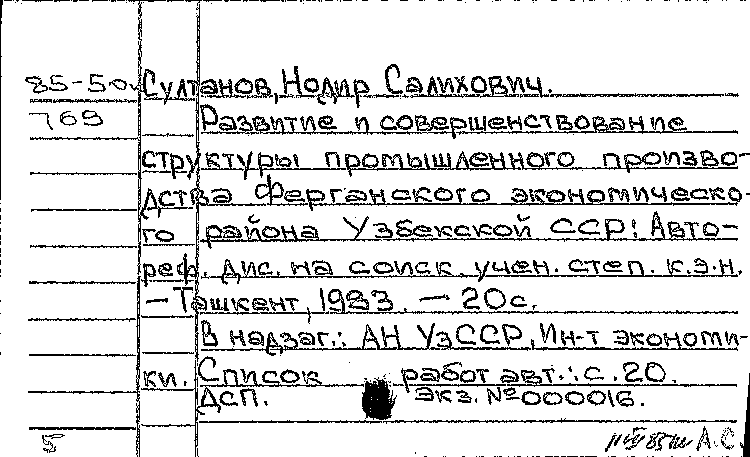 85-50 Султанов, Нодир Салихович.
769 Развитие и совершенствование
структуры промышленного произво-
дства Ферганского экономическо-
го района Узбекской ССР: Авто-
реф. дис. на соиск. учен. степ. к.э.н.
— Ташкент, 1983. — 20 с.
В надзаг.: АН УзССР, Ин-т экономи-
ки. Список работ авт.: с. 20.
ДСП. экз. № 000016.
5 А.С.